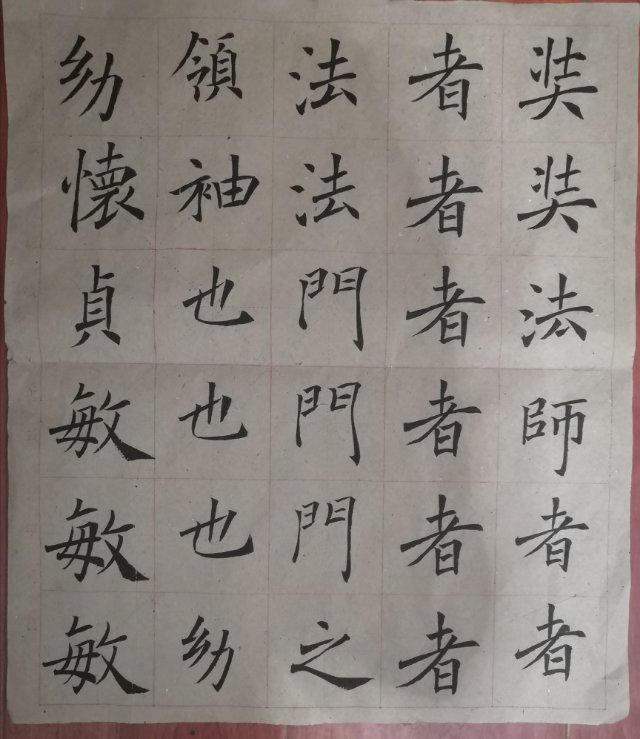 奘奘法師者者
者者者者者者
法法門門門之
領袖也也也幼
幼懷貞敏敏敏